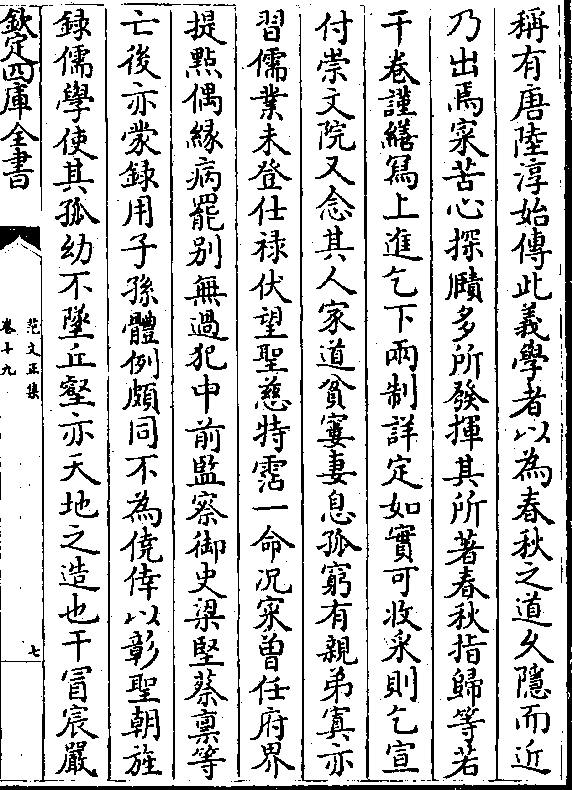 稱有唐陸淳始傳此義學者以為春秋之道久隱而近
乃出焉寀苦心探賾多所發揮其所著春秋指歸等若
干卷謹繕寫上進乞下兩制詳定如實可收采則乞宣
付崇文院又念其人家道貧窶妻息孤窮有親弟寘亦
習儒業未登仕禄伏望聖慈特霑一命况寀曽任府界
提㸃偶縁病罷别無過犯申前監察御史梁堅蔡禀等
亡後亦蒙録用子孫體例頗同不為僥倖以彰聖朝旌
録儒學使其孤幼不墜丘壑亦天地之造也干冒宸嚴
欽定四庫全書
范文正集
卷十九
七